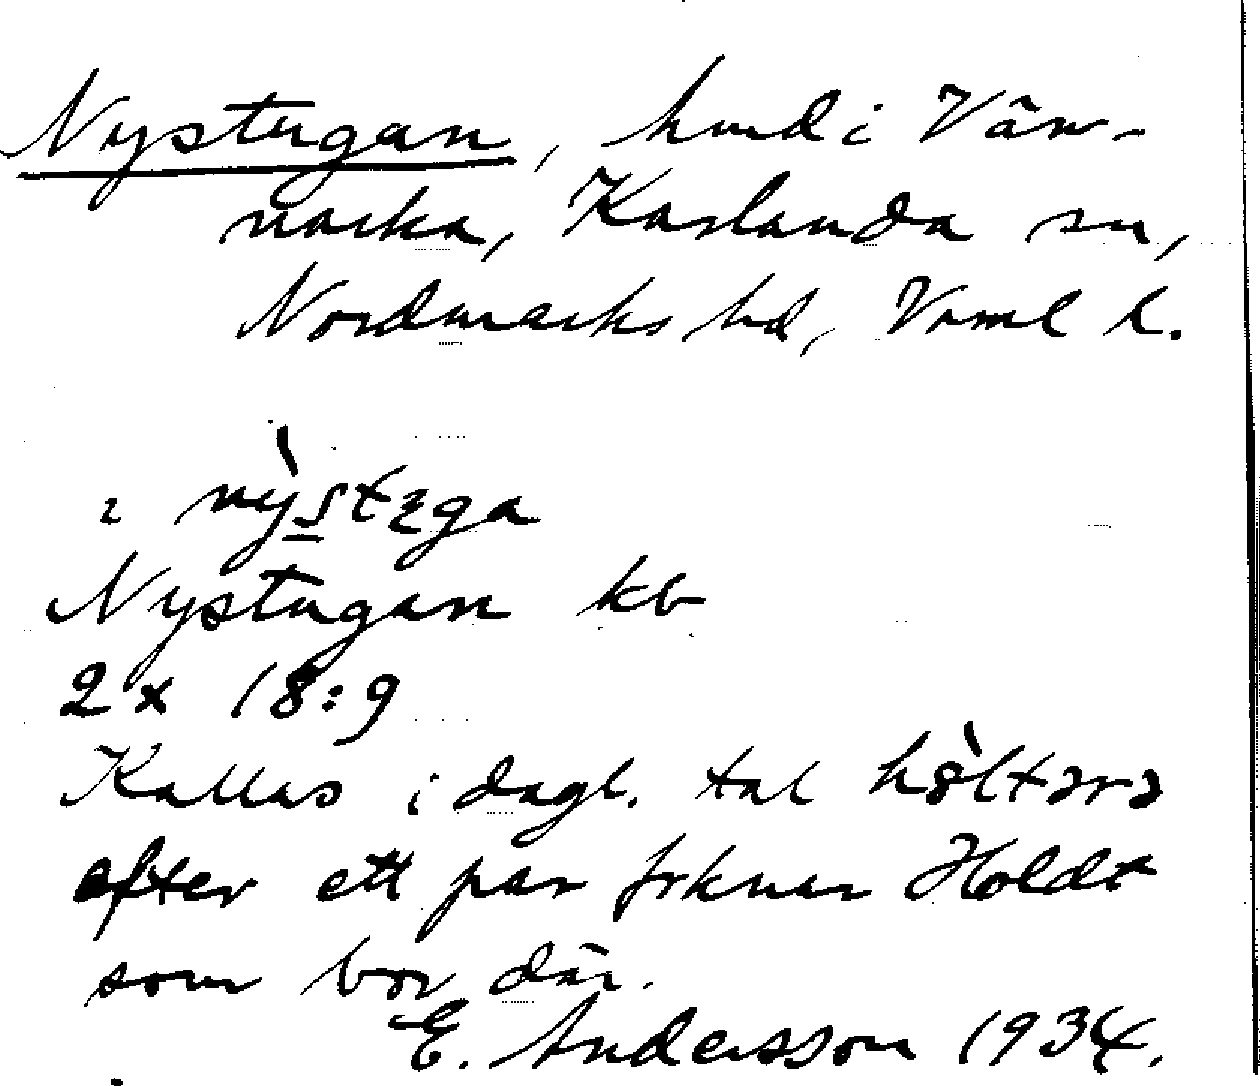 Nystugan, hmd i Vän-
nacka, Karlanda sn,
Nordmarks hd, Vrml l.
i nỳstʒga
Nystugan kb
2 x 18:9
Kallas i dagl. tal hòltərə
efter ett par frknar Holdt
som bor där.
E. Andersson 1934.